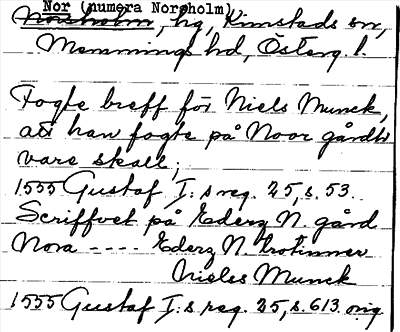 Nor (numera Norsholm)
Norsholm, hg, Kimstads sn,
Memmings hd, Österg. l.
Fogte breff för Niels Munck,
att han fogte på Noor gårdh
vare skall;
1555 Gustaf I:s reg. 25, s. 53.
Scriffvet på Ederz N. gård
Nora ---- Ederz N. trotinner
Nieles Munck
1555 Gustaf I:s reg. 25, s. 613. orig